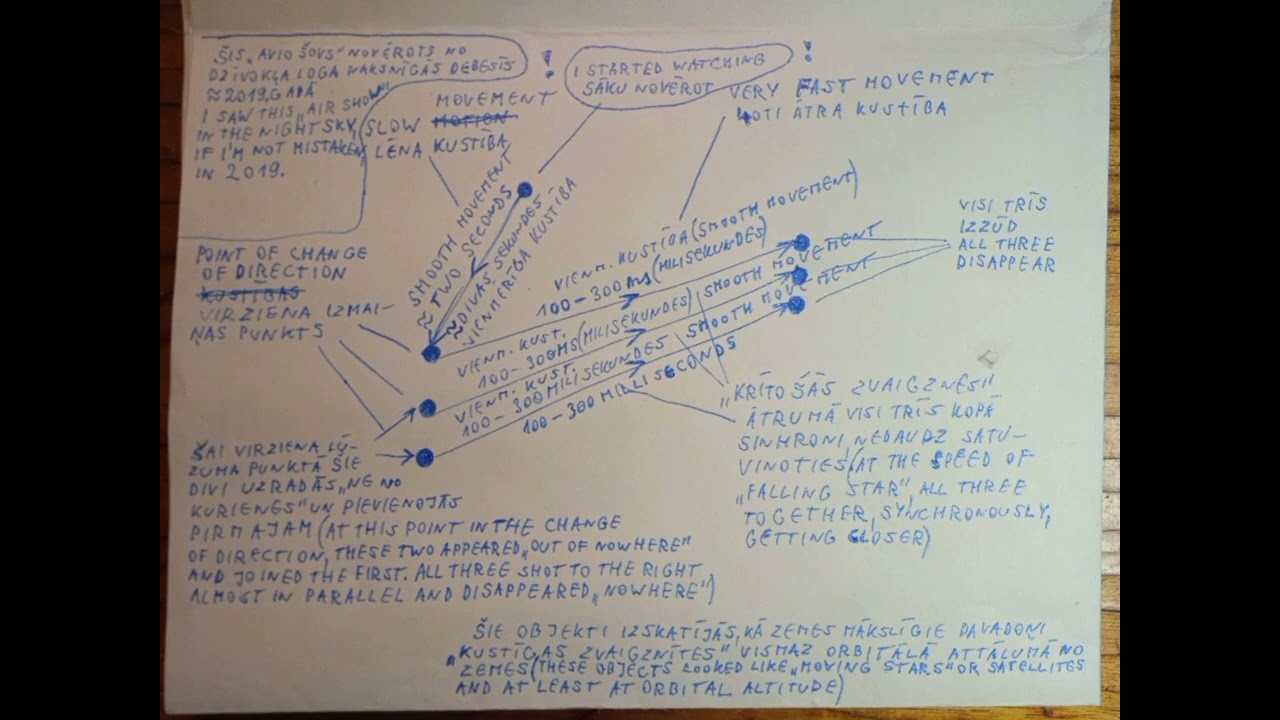 ŠIS „AVIO ŠOVS" NOVĒROTS NO
DZĪVOKĻA LOGA NAKSNĪGĀS DEBESĪS
≈ 2019. GADĀ
I SAW THIS „AIR SHOW"
IN THE NIGHT SKY,
IF I'M NOT MISTAKEN,
IN 2019.
!
I STARTED WATCHING
SĀKU NOVĒROT
!
MOVEMENT
(SLOW MOTION
LĒNA KUSTĪBA
VERY FAST MOVEMENT
ĻOTI ĀTRA KUSTĪBA
SMOOTH MOVEMENT
≈ TWO SECONDS
≈ DIVAS SEKUNDES
VIENMĒRĪGA KUSTĪBA
POINT OF CHANGE
OF DIRECTION
KUSTĪBAS
VIRZIENA IZMAI-
ŅAS PUNKTS
VIENM. KUSTĪBA (SMOOTH MOVEMENT)
100-300 MS (MILISEKUNDES)
VIENM. KUST. SMOOTH MOVEMENT
100-300MS (MILISEKUNDES)
VIENM. KUST. SMOOTH MOVEMENT
100-300 MILISEKUNDES
100-300 MILLISECONDS
VISI TRĪS
IZZŪD
ALL THREE
DISAPPEAR
„KRĪTOŠĀS ZVAIGZNES"
ĀTRUMĀ VISI TRĪS KOPĀ
SINHRONI, NEDAUDZ SATU-
VINOTIES (AT THE SPEED OF
„FALLING STAR", ALL THREE
TOGETHER, SYNCHRONOUSLY,
GETTING CLOSER)
ŠAI VIRZIENA LŪ-
ZUMA PUNKTA ŠIE
DIVI UZRADĀS „NE NO
KURIENES" UN PIEVIENOJĀS
PIRMAJAM (AT THIS POINT IN THE CHANGE
OF DIRECTION, THESE TWO APPEARED „OUT OF NOWHERE"
AND JOINED THE FIRST. ALL THREE SHOT TO THE RIGHT
ALMOST IN PARALLEL AND DISAPPEARED „NOWHERE")
ŠIE OBJEKTI IZSKATĪJĀS, KĀ ZEMES MĀKSLĪGIE PAVADOŅI
„KUSTĪGAS ZVAIGZNĪTES" VISMAZ ORBITĀLĀ ATTĀLUMĀ NO
ZEMES (THESE OBJECTS LOOKED LIKE „MOVING STARS" OR SATELLITES
AND AT LEAST AT ORBITAL ALTITUDE)